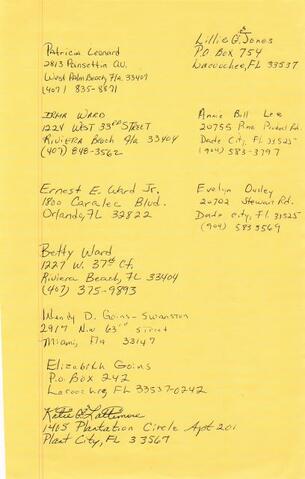 Patricia Leonard
2813 Poinsettia Av.
West Palm Beach, Fla. 33407
(407) 835-8871
Irma Ward
1224 West 33rd Street
Riviera Beach Fla 33404
(407) 848-3562
Ernest E. Ward Jr.
1800 Caralee Blvd.
Orlando, FL 32822
Betty Ward
1227 W. 37th Ct.
Riviera Beach, FL 33404
(407) 375-9893
Wendy D. Goins-Swanston
2917 N.W 63rd Street
Miami, Fla 33147
Elizabeth Goins
P.O. Box 242
Lacoochee, FL 33537-0242
Lattimore
1405 Plantation Circle Apt 201
Plant City, FL 33567
Lillie Jones
P.O Box 754
Lacoochee, FL 33537
Annie Bill Lee
20755 Pine Rd.
Dade City, Fl. 33525
(904) 583-3797
Evelyn
20702 Stewart Rd.
Dade City, Fl. 33525
(904) 583 3569